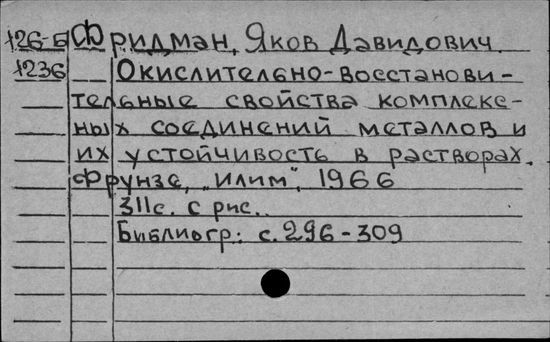 126-Б Фридман, Яков Давидович.
1236 Окислительно-восстанови-
тельные свойства комплекс-
ных соединений металлов и
их устойчивость в растворах.
Фрунзе, „Илим", 1966
311с. с рис..
Библиогр: с.296-309